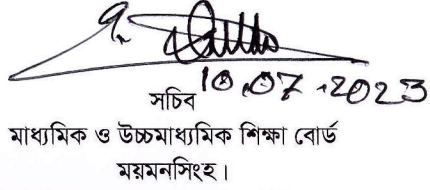 10.07.2023
সচিব
মাধ্যমিক ও উচ্চমাধ্যমিক শিক্ষা বোর্ড
ময়মনসিংহ।